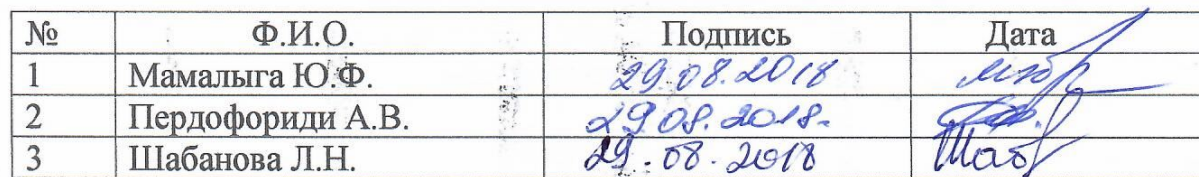 № Ф.И.О. Подпись Дата
1 Мамалыга Ю.Ф. 29.08.2018
2 Пердофориди А.В. 29.08.2018.
3 Шабанова Л.Н. 29.08.2018 Шаб